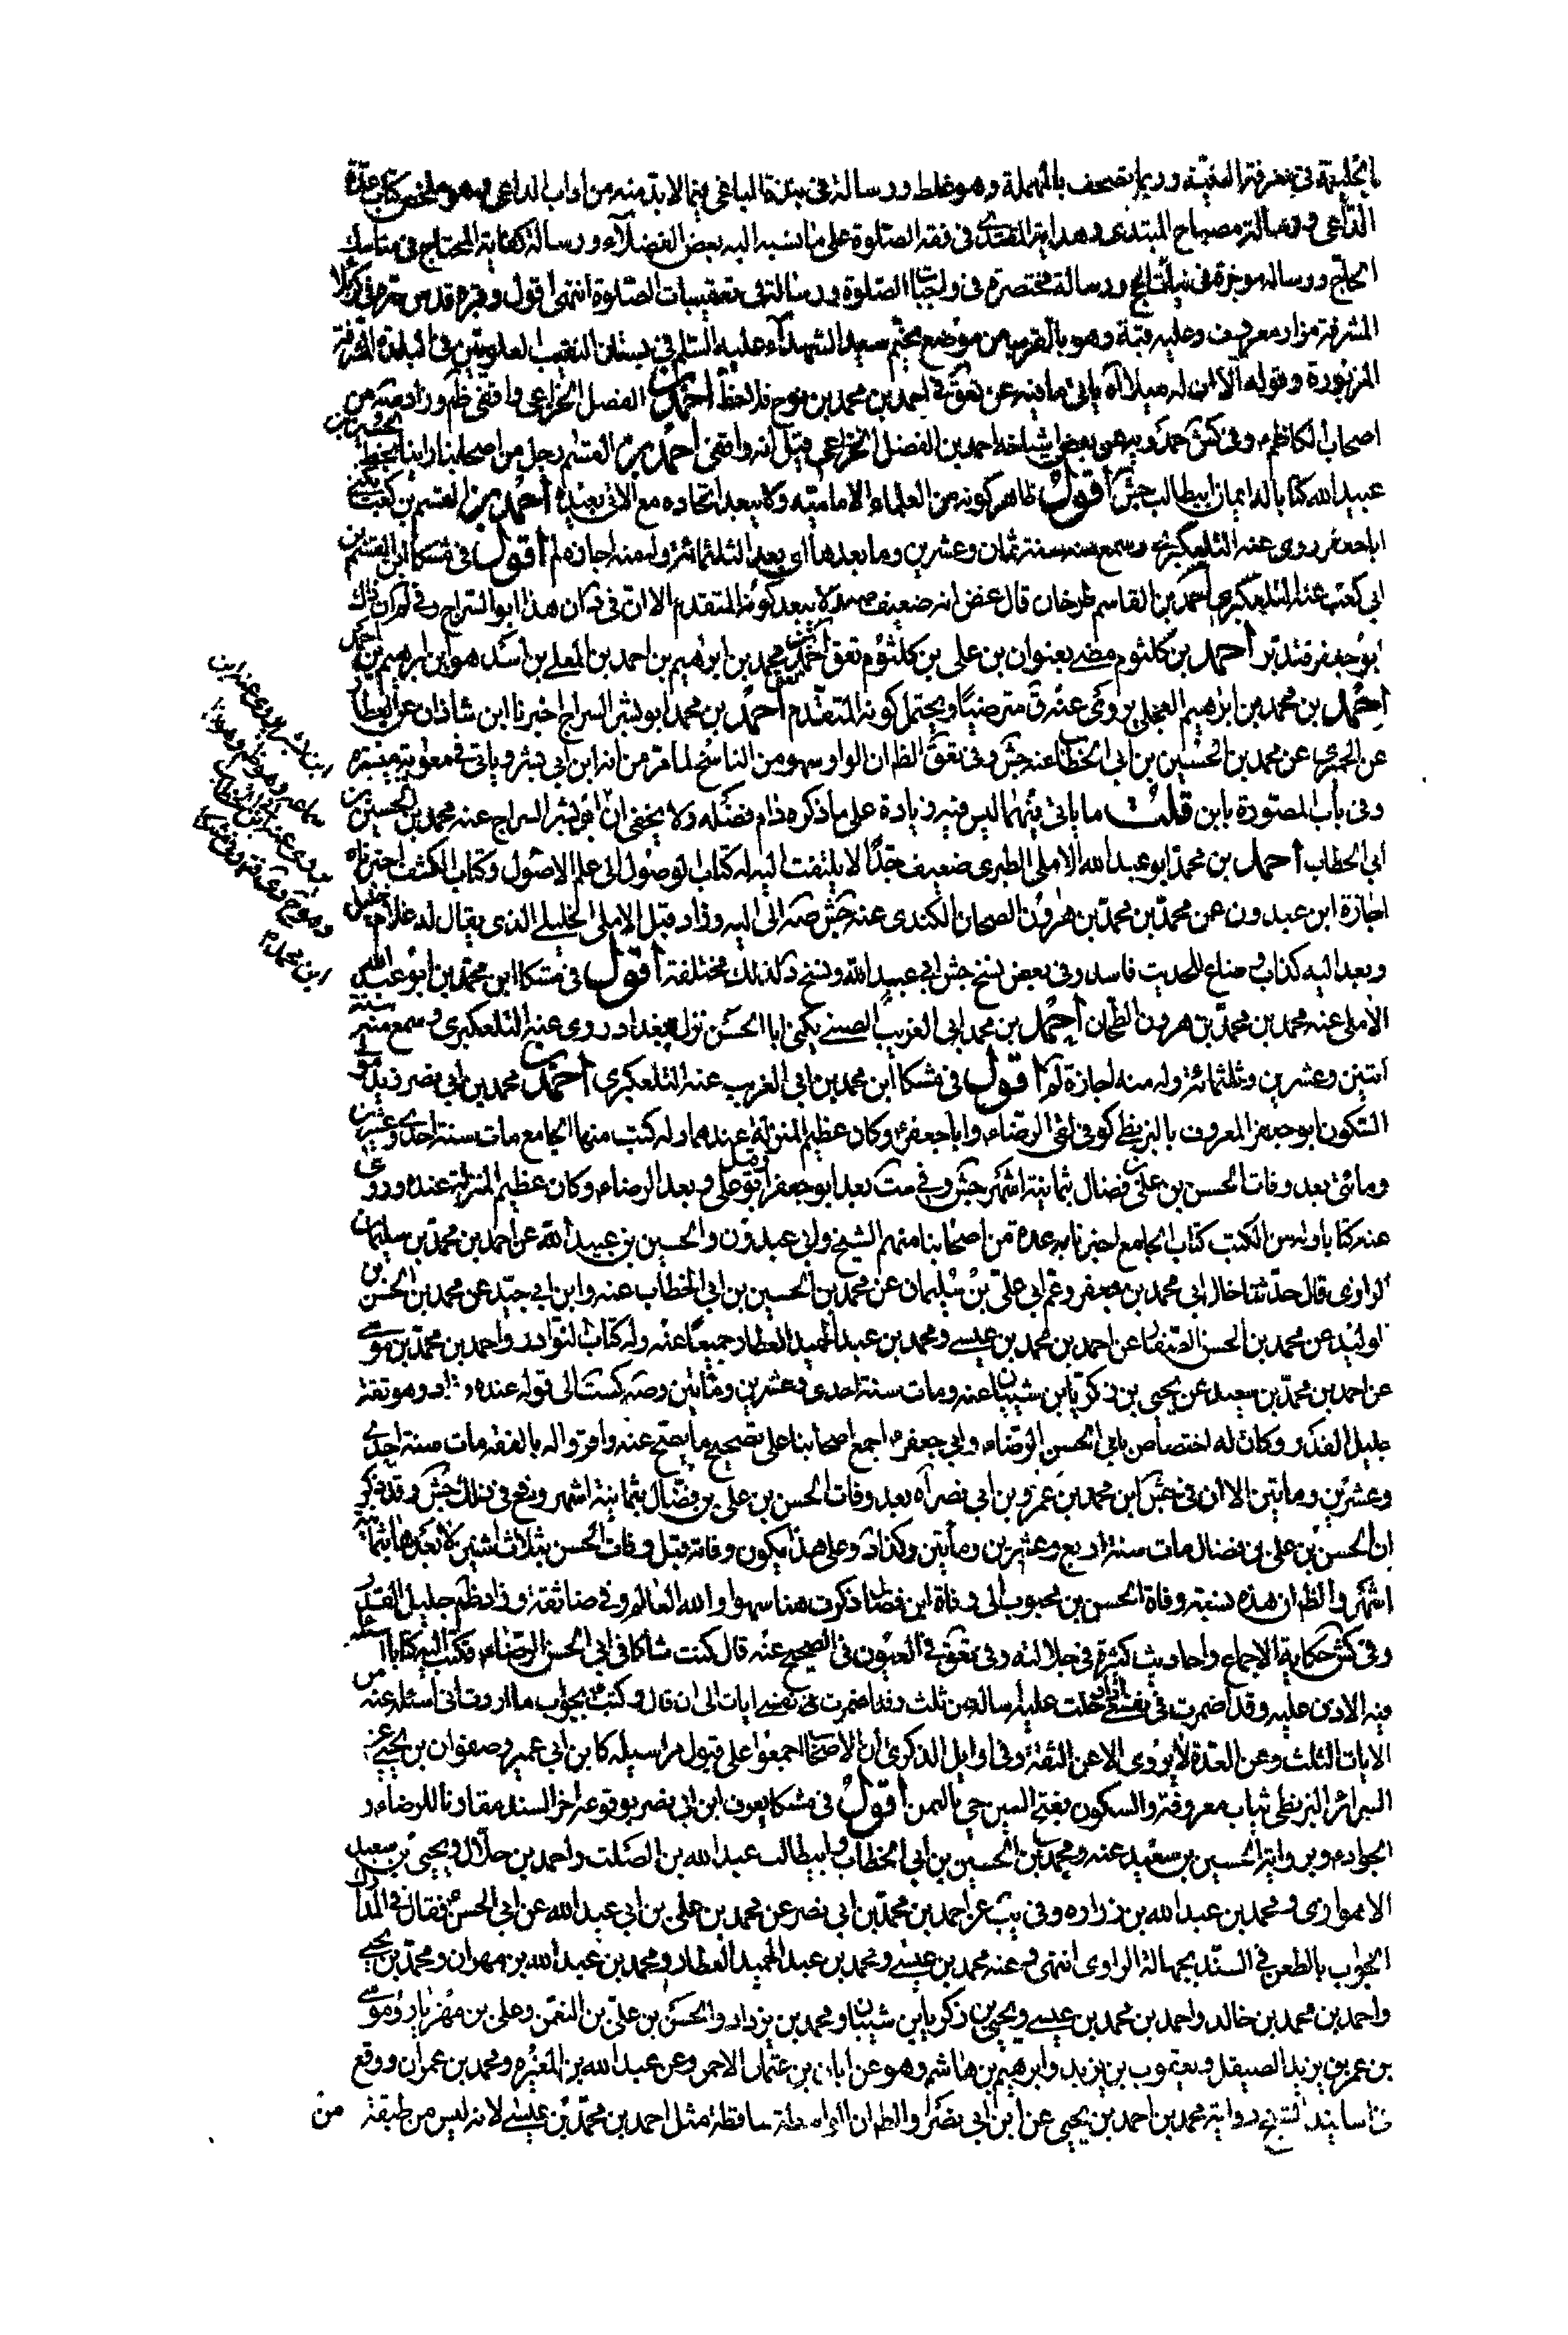 الجليّة في معرفة النيّة وربما يصحف بالمهملة وهو غلط ورسالة في نبذة الباغي فيما لا بدّ منه من اداب الداعي وهو ملخص كتاب عدّة
الدّاعي ورسالة مصباح المبتدي وهداية المقتدي في فقه الصّلوة على ما نسبه اليه بعض الفضلاء ورسالة كفاية المحتاج في مناسك
الحاج ورسالة موجزة في نيات الحج ورسالة مختصرة في واجبات الصلوة ورسالة في تعقيبات الصّلوة انتهى اقول وقبره قدس سره في كربلا
المشرفة مزار معروف وعليه قبّة وهو بالقرب من موضع مخيّم سيد الشهداء عليه السّلم في بستان النقيب العلويّين في البلدة المشرفة
المزبورة وقوله الا ان له ميلا اه ياتي ما فيه عن تعق في احمد بن محمد بن نوح فلاحظ احمد بن الفضل الخزاعي واقفي ظم وزاد صه من
اصحاب الكاظم وفي كش حمدويه عن بعض اشياخه احمد بن الفضل الخزاعي قيل انه واقفي احمد بن القسم رجل من اصحابنا راينا بخط الحسين بن
عبيد الله كتابا له ايمان ابيطالب جش اقول ظاهر كونه من العلماء الاماميّه ولا يبعد اتحاده مع الاتي بعيده احمد بن القسم بن ابي كعب يكنى
ابا جعفر روى عنه التلعكبري وسمع منه سنة ثمان وعشرين وما بعدها اي بعد الثلثمائة وله منه اجازة لم اقول في مشكا ابن القسم بن
ابي كعب عنه التلعكبري احمد بن القاسم طرخان قال غض انه ضعيف صه ولا يبعد كونه المتقدم الا ان في ان هذا ابو السراج وفي لم كان ذلك
ابو جعفر فتدبر احمد بن كلثوم مضى بعنوان بن علي بن كلثوم تعق احمد بن محمد بن ابرهيم بن احمد بن المعلى بن اسد هو ابن ابرهيم بن احمد
احمد بن محمد بن ابرهيم العجلي روى عنه ق مترضيّا ويحتمل كونه المتقدم تعق احمد بن محمد ابو بشر السراج اخبرنا ابن شاذان عن العطار
عن الحميري عن محمد بن الحسين بن ابي الخطاب عنه جش وفي تعق الظ ان الواو سهو من الناسخ لما مرّ من انه ابن ابي بشر وياتي في معوية بن ميسره
وفي باب المصدّرة بابن قلت ما ياتي فيهما ليس فيه زيادة على ما ذكره دام فضله ولا يخفى ان ابو بشر السراج عنه محمد بن الحسين بن
ابي الخطاب احمد بن محمد ابو عبد الله الاملي الطبري ضعيف جدّا لا يلتفت اليه له كتاب الوصول الى علم الاصول وكتاب الكشف اخبرناه
اجازة ابن عبدون عن محمّد بن محمّد بن هرون الطحان الكندي عنه جش صه الى اليه وزاد قبل الاملي الخليلي الذي يقال له غلام خليل
وبعد اليه كذاب وضاع للحديث فاسد وفي بعض نسخ جش ابي عبيد الله ونسخ د كذلك مختلفة اقول في مشكا ابن محمّد بن ابو عبد الله
الاملي عنه محمد بن محمّد بن هرون الطحان احمد بن محمد ابي الغريب الصيني يكنى ابا الحسن نزل ببغداد روى عنه التلعكبري وسمع منه سنة
اثنين وعشرين وثلثمائة وله منه اجازة لم اقول في مشكا ابن محمد بن ابي الغريب عنه التلعكبري احمد بن محمد بن ابي نصر زيد مولى
السّكون ابو جعفر المعروف بالبزنطي كوفي لقى الرضاء وابا جعفر وكان عظيم المنزلة عندهما وله كتب منها الجامع مات سنة احدى وعشرين
ومائتى بعد وفات الحسن بن علي بن فضال بثمانية اشهر جش وفي ست بعد ابو جعفر وقيل ابو علي وبعد الرضاء وكان عظيم المنزلة عنده وروى
عنه كتابا وله من الكتب كتاب الجامع اخبرنا به عدة من اصحابنا منهم الشيخ وابن عبدون والحسين بن عبيد الله عن احمد بن محمّد بن سليمان
الزراري قال حدّثنا خال ابي محمد بن جعفر وعم ابي علي بن سليمان عن محمد بن الحسين بن ابي الخطاب عنه وابن ابي جيّد عن محمد بن الحسن بن
الوليد عن محمد بن الحسن الصّفار عن احمد بن محمد بن عيسى ومحمد بن عبد الحميد العطار جميعًا عنه وله كتاب النوادر واحمد بن محمّد بن موسى
عن احمد بن محمّد بن سعيد عن يحيى بن زكريّا بن شيبان عنه ومات سنة احدى وعشرين ومائتين وصه كست الى قوله عنده وزاد وهو ثقة
جليل القدر وكان له اختصاص بابي الحسن الرضاء وابي جعفر اجمع اصحابنا على تصحيح ما يصح عنه واقرّوا له بالفقه مات سنة احدى
وعشرين ومايتين الا ان في جش ابن محمد بن عمرو بن ابي نصر اه بعد وفات الحسن بن علي بن فضّال بثمانية اشهر وقع في ذلك جش وقد ذكر
ان الحسن بن علي بن فضال مات سنة اربع وعشرين ومأتين وكذا د وعلى هذا يكون وفاته قبل وفات الحسن بثلاث سنين لا بعدها بثمانية
اشهر والظ ان هذه سنة وفاة الحسن بن محبوب الى وفاة ابن فضال ذكرت هنا سهوا والله العالم وفي ضا ثقة وزاد ظم جليل القدر
وفي كش حكاية الاجماع واحاديث كثيرة في جلالته وفي تعق في العيون في الصحيح عنه قال كنت شاكا في ابي الحسن الرضاء فكتب اليه كتابا اسئله
فيه الاذن عليه وقد اضمرت في نفسي اذا دخلت عليه اساله عن ثلث وقد اضمرت في نفسي ايات الى ان قال وكتب بجواب ما اردت ان اسئله عنه من
الايات الثلث وعن العدّة لا يروى الا عن الثقة وفي اوايل الذكرى ان الاصحاب اجمعوا على قبول مراسيله كابن ابي عمير وصفوان بن يحيى عن
السرائر البزنطي ثياب معروفة والسكون بفتح السين حي باليمن اقول في مشكا يعرف ابن ابي نصر بوقوعه اخر السند مقارنا للرضاء و
الجواد وبرواية الحسين بن سعيد عنه ومحمد بن الحسين بن ابي الخطاب وابيطالب عبد الله بن الصّلت واحمد بن هلال ويحيى بن سعيد
الاهوازي ومحمد بن عبد الله بن زراره وفي يب عن احمد بن محمّد بن ابي نصر عن محمد بن علي بن ابي عبد الله عن ابي الحسن فقال في المدارك
الجواب بالطعن في السّند بجهالة الراوي انتهى وعنه محمد بن عيسى ومحمد بن عبد الحميد العطار ومحمد بن عبد الله بن مهران ومحمّد بن يحيى
واحمد بن محمد بن خالد واحمد بن محمد بن عيسى ويحيى بن زكريا بن شيبان ومحمد بن يزداد والحسن بن عليّ بن النعمن وعلي بن مهزيار وموسى
بن عمر بن يزيد الصيقل ويعقوب بن يزيد وابرهيم بن هاشم وهو عن ابان بن عثمان الاحمر وعن عبد الله بن المغيره ومحمد بن عمران ووقع
في اسانيد الشيخ رواية محمد بن احمد بن يحيى عن ابن ابي نصر والظ ان الواسطة ساقطة مثل احمد بن محمّد بن عيسى لانه ليس من طبقة من